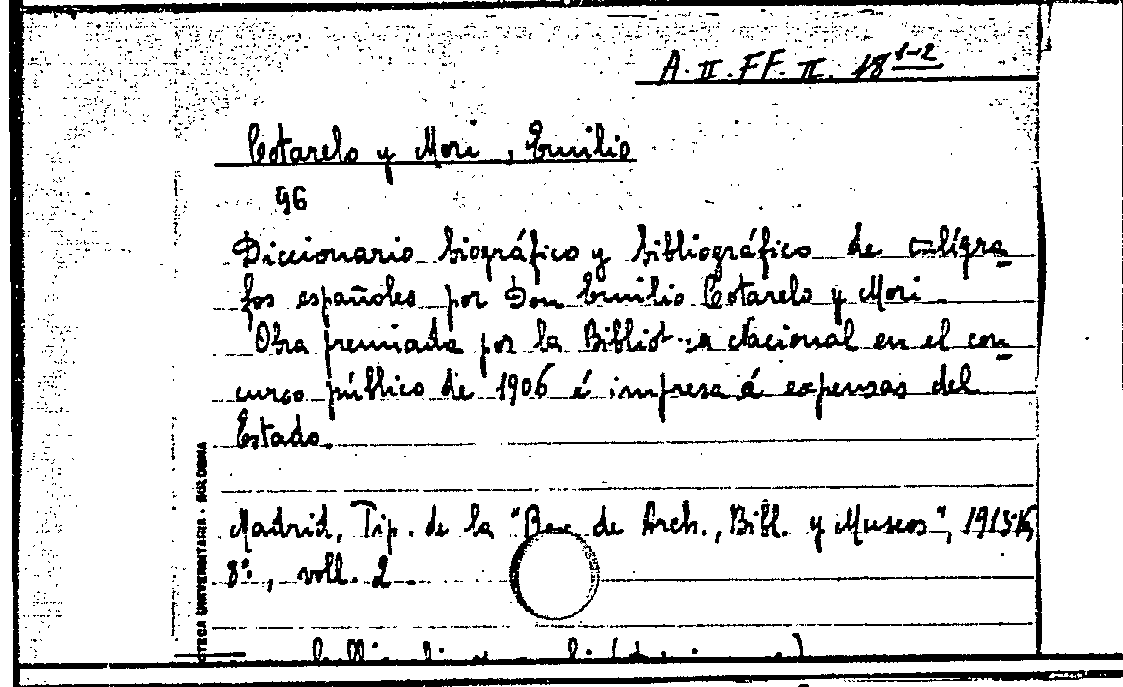 A. II. FF. II. 18 1-2
Cotarelo y Mori, Emilio
96
Diccionario biográfico y bibliográfico de calígra
fos españoles por Don Emilio Cotarelo y Mori
Obra premiada por la Nacional en el con
curso público de 1906 é impresa á expensas del
Estado.
Madrid, Tip. de la "Rev. de Arch., Bibl. y Museos", 1913-16,
8°, voll. 2.
UNIVERSITARIA - BOLOGNA